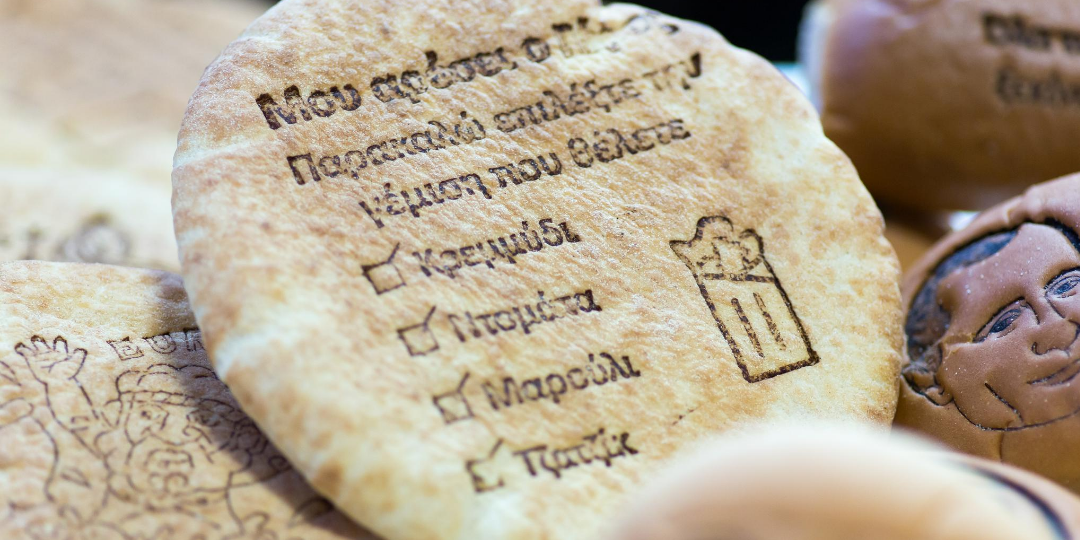 Μου αρέσει ο
Παρακαλώ επιλέξτε την
γέμιση που θέλετε
Κρεμμύδι
Ντομάτα
Μαρούλι
Τζατζίκ